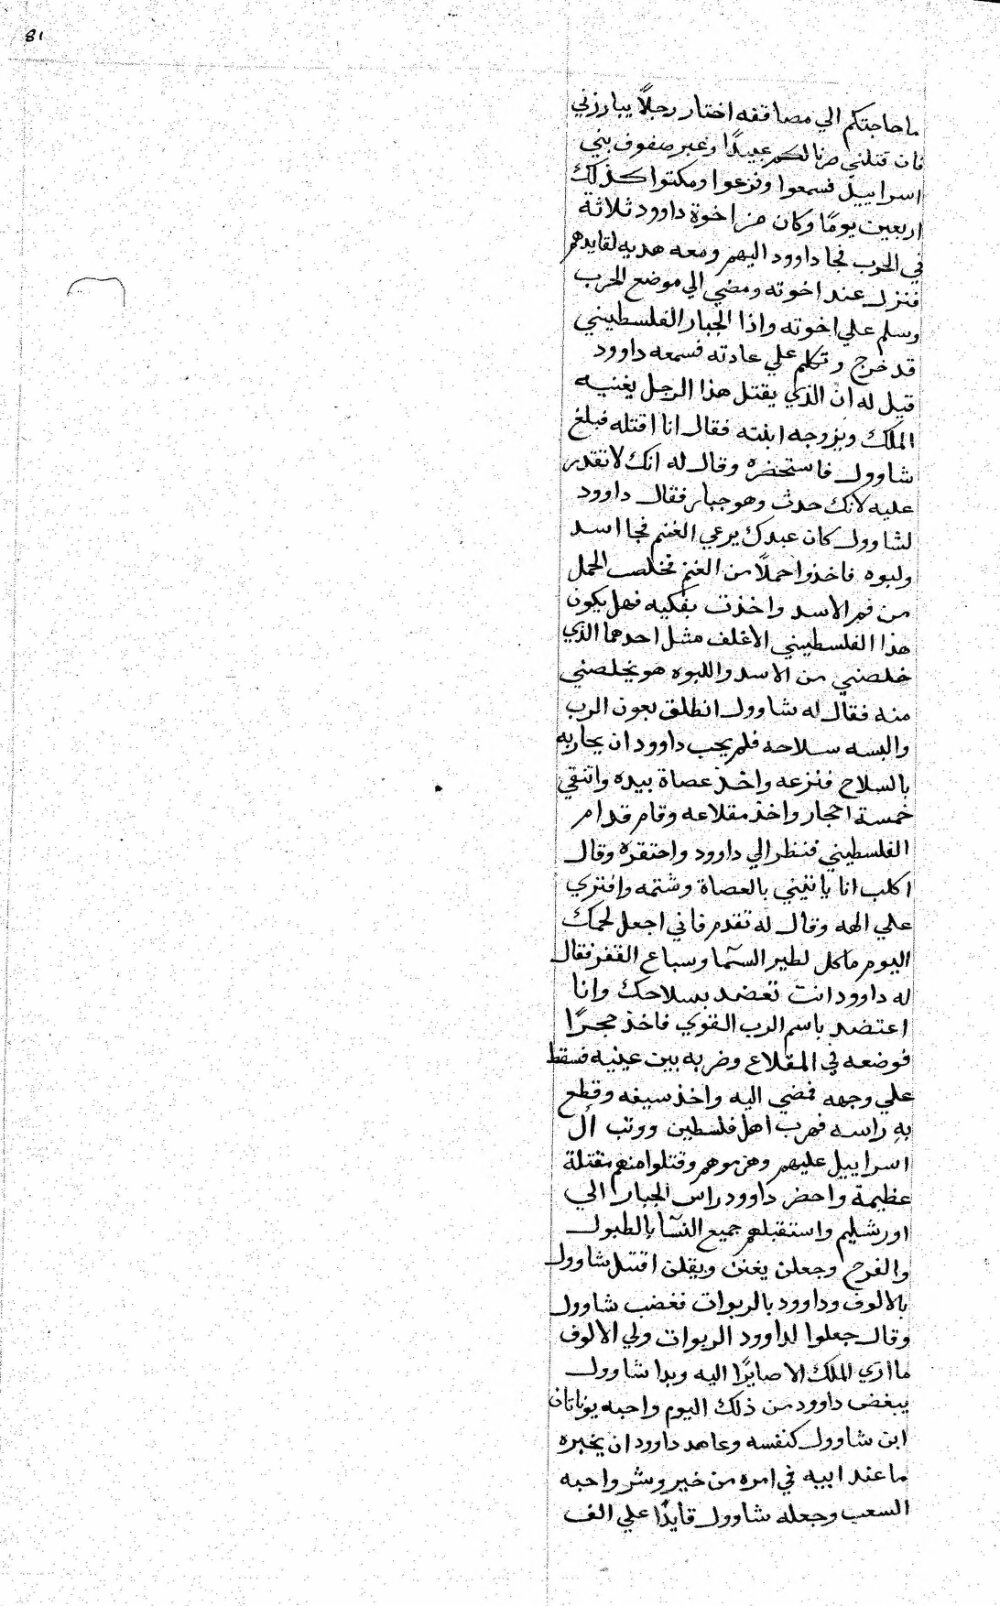 81
ما حاجتكم الي مصاففه اختار رجلًا يبارزني
فان قتلني صرنا لكم عبيدًا وعبر صفوف بني
اسراييل فسمعوا وفزعوا ومكتوا كذلك
اربعين يومًا وكان من اخوة داوود ثلاثة
في الحرب فجا داوود اليهم ومعه هديه لقايدهم
فنزل عند اخوته ومضي الي موضع الحرب
وسلم علي اخوته واذا الجبار الفلسطيني
قد خرج وتكلم علي عادته فسمعه داوود
قيل له ان الذي يقتل هذا الرجل يغنيه
الملك ويزوجه ابنته فقال انا اقتله فبلغ
شاوول فاستحضره وقال له انك لا تقدر
عليه لانك حدث وهو جبار فقال داوود
لشاوول كان عبدك يرعي الغنم فجا اسد
ولبوه فاخذوا حملًا من الغنم فخلصت الحمل
من فم الاسد واخذت بفكيه فهل يكون
هذا الفلسطيني الاغلف مثل احدهما الذي
خلصني من الاسد واللبوه هو يخلصني
منه فقال له شاوول انطلق بعون الرب
والبسه سلاحه فلم يحب داوود ان يحاربه
بالسلاح فنزعه واخذ عصاة بيده وانتقي
خمسة احجار واخذ مقلاعه وقام قدام
الفلسطيني فنظر الي داوود واحتقره وقال
اكلب انا يا تيني بالعصاة وشتمه وافتري
علي الهه وقال له تقدم فاني اجعل لحمك
اليوم ماكل لطير السما وسباع القفر فقال
له داوود انت تعضد بسلاحك وانا
اعتضد باسم الرب القوي فاخذ حجرًا
فوضعه في المقلاع وضربه بين عينيه فسقط
علي وجهه فمضي اليه واخذ سيفه وقطع
به راسه فهرب اهل فلسطين ووتب ال
اسراييل عليهم وهزموهم وقتلوا منهم مقتلة
عظيمة واحضر داوود راس الجبار الي
اورشليم واستقبلهم جميع النسا بالطبول
والفرح وجعلن يغنن ويقلن اقتل شاوول
بالالوف وداوود بالربوات فغضب شاوول
وقال جعلوا لداوود الربوات ولي الالوف
ما اري الملك الا صايرًا اليه وبدا شاوول
يبغض داوود من ذلك اليوم واحبه يوناتان
ابن شاوول كنفسه وعاهد داوود ان يخبره
ما عند ابيه في امره من خير وشر واحبه
السعب وجعله شاوول قايدًا علي الف